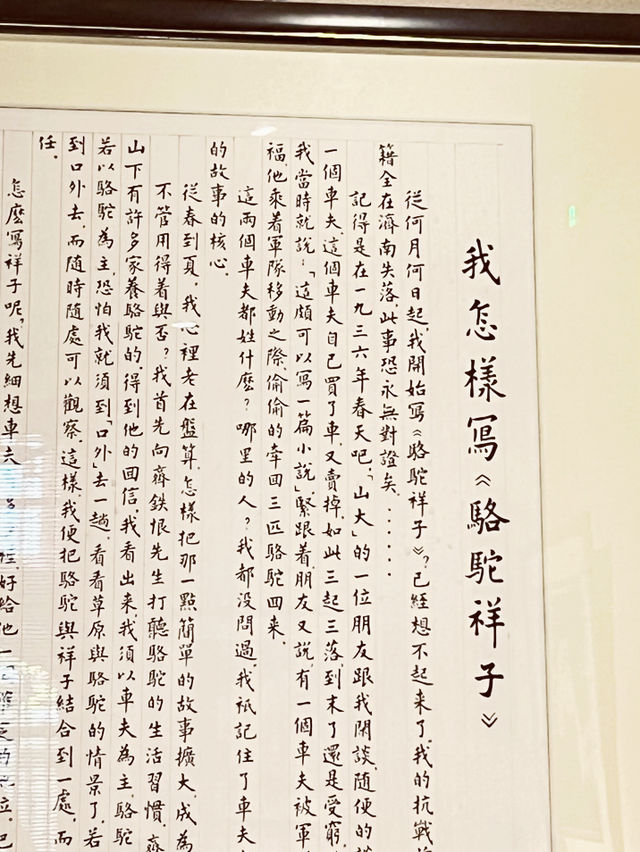 我怎樣寫《駱駝祥子》
從何月何日起，我開始寫《駱駝祥子》？已經想不起來了。我的抗戰前
籍全在濟南失落，此事恐永無對證矣。......
記得是在一九三六年春天吧，「山大」的一位朋友跟我閑談，隨便的談
一個車夫，這個車夫自己買了車，又賣掉，如此三起三落，到末了還是受窮，
我當時就說：「這頗可以寫一篇小說」緊跟着，朋友又說，有一個車夫被軍
福，他乘着軍隊移動之際，偷偷的牽回三匹駱駝回來。
這兩個車夫都姓什麼？哪里的人？我都没問過。我祇記住了車夫
的故事的核心。
從春到夏，我心裡老在盤算，怎樣把那一點簡單的故事擴大，成為
不管用得着與否？我首先向齊鉄恨先生打聽駱駝的生活習慣，齊
山下有許多家養駱駝的，得到他的回信，我看出來，我須以車夫為主，駱駝
若以駱駝為主，恐怕我就須到「口外」去一趟，看看草原與駱駝的情景了，若
到口外去，而隨時隨處可以觀察，這樣，我便把駱駝與祥子結合到一處，而
任。
怎麼寫祥子呢，我先細想車夫 種，好給他一 的地位，